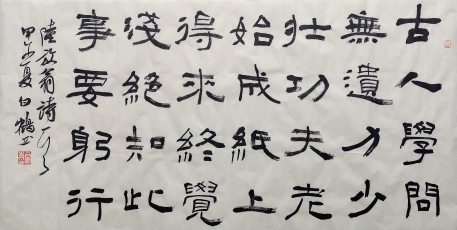 古人學問
無遺力少
壮功夫老
始成紙上
得來終覺
淺絕知此
事要躬行
陸放翁詩一首
甲午夏白鶴